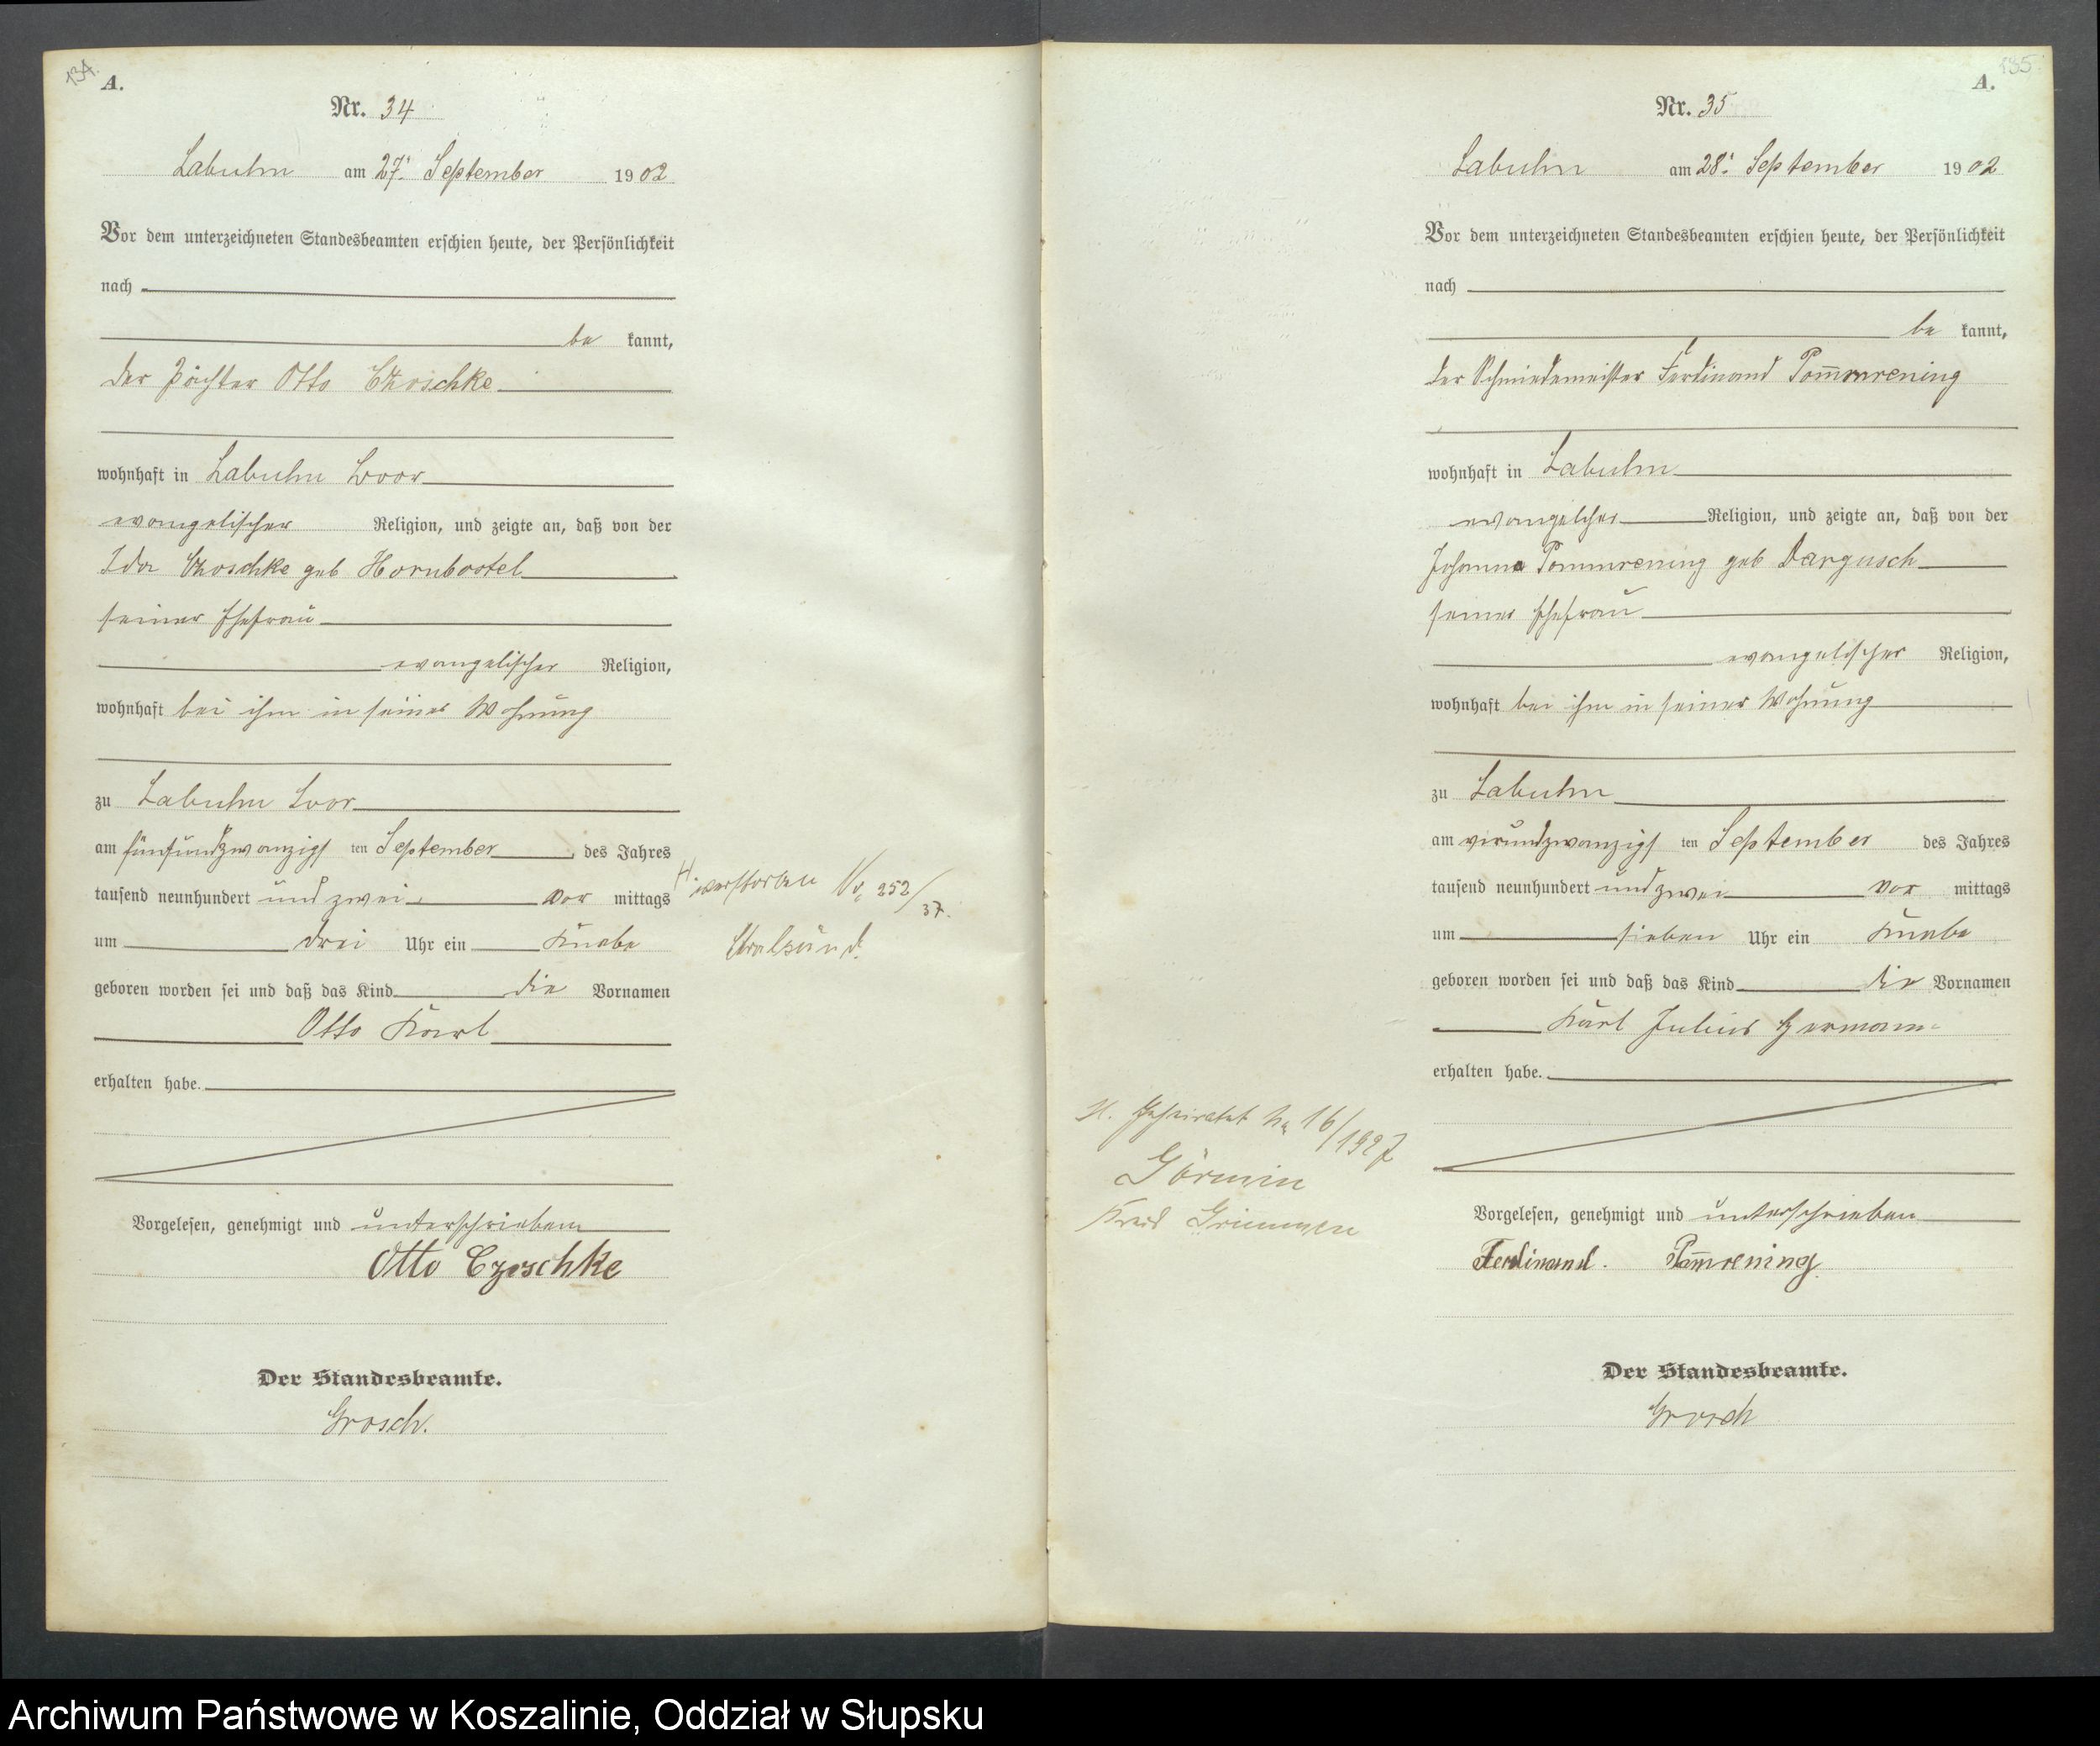 134.
A.
Nr. 34
Labuhn am 27. September 1902
Vor dem unterzeichneten Standesbeamten erschien heute, der Persönlichkeit
nach
be kannt,
der Pächter Otto Czoschke
wohnhaft in Labuhn
evangelischer Religion, und zeigte an, daß von der
Ida Czoschke geb Hornbostel
seiner Ehefrau
evangelischer Religion,
wohnhaft bei ihm in seiner Wohnung
zu Labuhn
am fünfundzwanzigs ten September des Jahres
tausend neunhundert und zwei vor mittags
um drei Uhr ein Knabe
geboren worden sei und daß das Kind die Vornamen
Otto Karl
erhalten habe.
Vorgelesen, genehmigt und unterschrieben
Otto Czoschke
Der Standesbeamte.
Grosch.
H. verstorben Nr. 252/37.
Stralsund.
135
A.
Nr. 35
Labuhn am 28. September 1902
Vor dem unterzeichneten Standesbeamten erschien heute, der Persönlichkeit
nach
be kannt,
der Schmiedemeister Ferdinand Pom̅mrening
wohnhaft in Labuhn
evangelcher Religion, und zeigte an, daß von der
Johanna Pommrening geb Dargusch
seiner Ehefrau
evangelischer Religion,
wohnhaft bei ihm in seiner Wohnung
zu Labuhn
am vierundzwanzigs ten September des Jahres
tausend neunhundert und zwei vor mittags
um sieben Uhr ein Knabe
geboren worden sei und daß das Kind die Vornamen
Karl Julius Hermann
erhalten habe.
H. Geheiratet Nr 16/1927
Görmin
Kreis Grimmen
Vorgelesen, genehmigt und unterschrieben
Ferdinand. Pom̅rening
Der Standesbeamte.
Grosch
Archiwum Państwowe w Koszalinie, Oddział w Słupsku